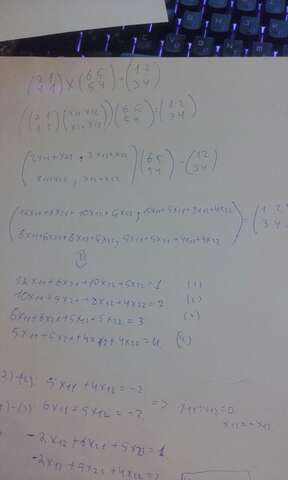 (2 1 / 1 1) X (6 5 / 5 4) = (1 2 / 3 4)
((2 1 / 1 1) (x11 x12 / x21 x22)) (6 5 / 5 4) = (1 2 / 3 4)
(2x11+x21, 2x12+x22 / x11+x21, x12+x22) (6 5 / 5 4) = (1 2 / 3 4)
(12x11+6x21+10x12+5x22, 10x11+5x21+8x12+4x22 / 6x11+6x21+5x12+5x22, 5x11+5x21+4x12+4x22) = (1 2 / 3 4
12x11+6x21+10x12+5x22=1 (1)
10x11+5x21+8x12+4x22=2 (2)
6x11+6x21+5x12+5x22=3 (3)
5x11+5x21+4x12+4x22=4 (4)
5x11+4x12=-2
6x11+5x12=-2 => x11+x12=0
x11=-x12
-2x12+6x21+5x22=1
-2x12+5x21+4x22=2